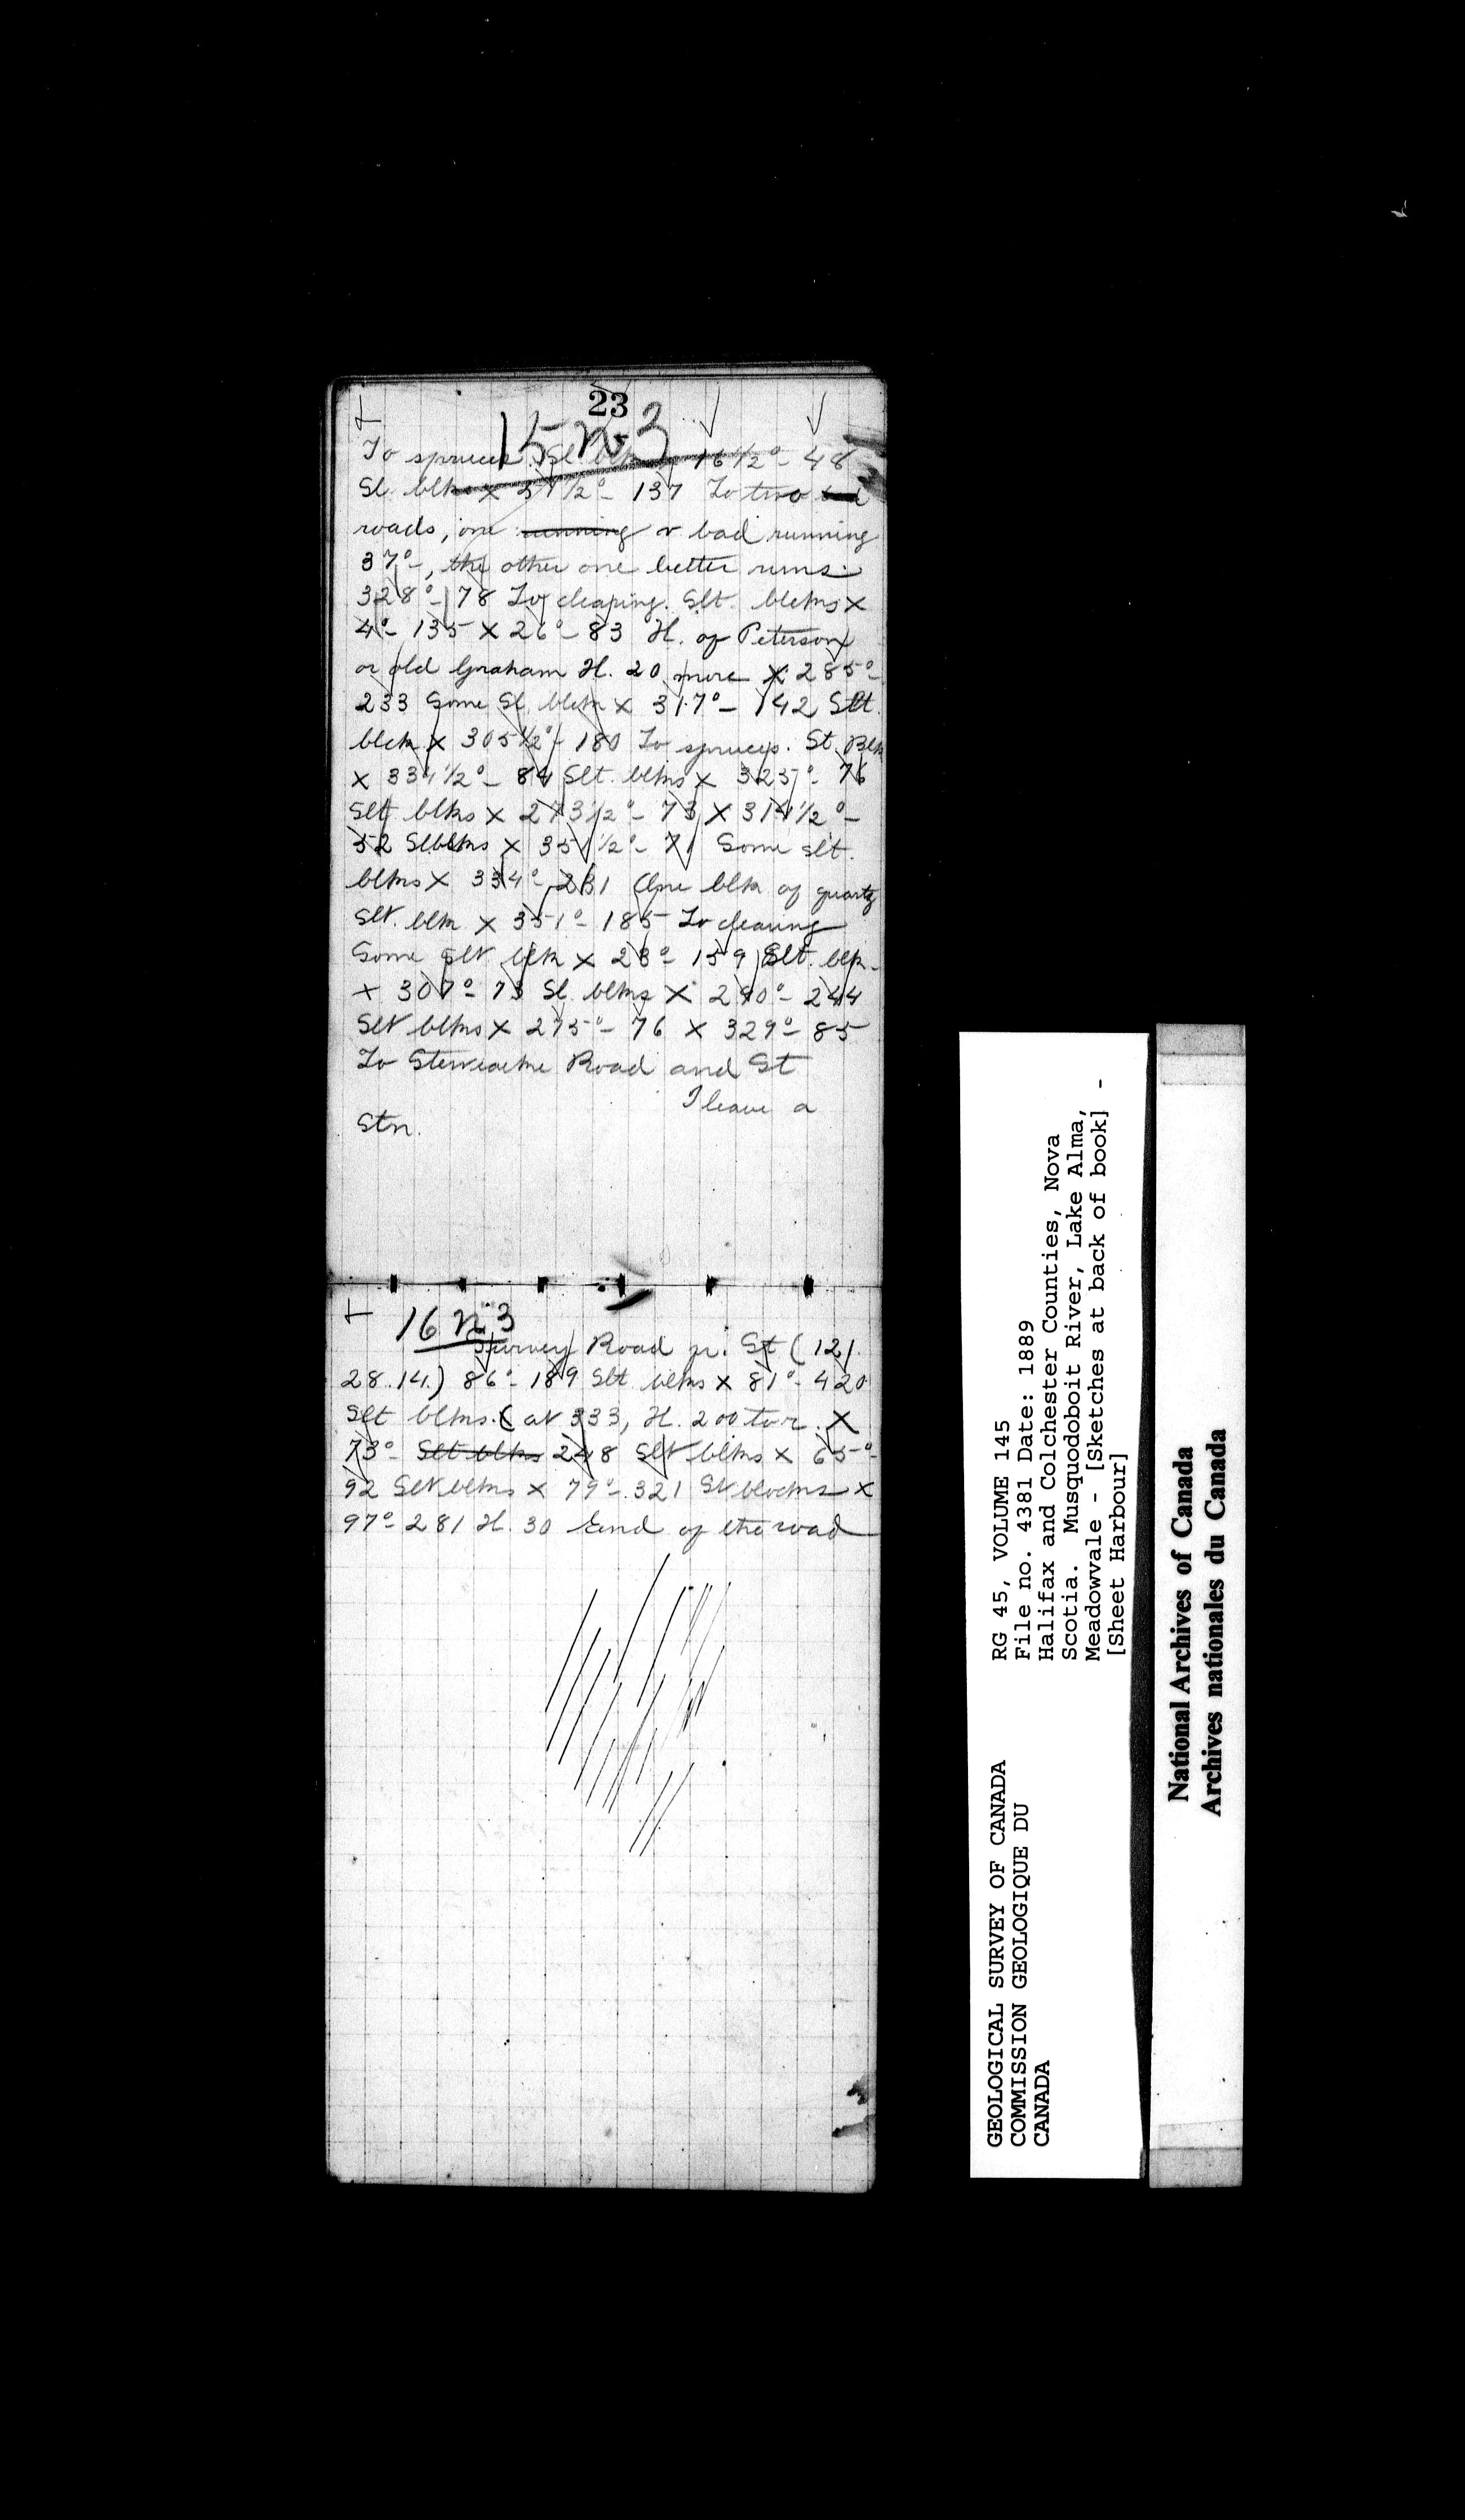 23
15 n 3
To spruces. Sl. blks 16 1/2° - 48
Sl. blks x 31 1/2° - 137 To two bad
roads, one running v bad running
37° -, the other one better runs
328° - 78 To clearing. Slt. blcks x
4° - 135 x 26° - 83 H. of Peterson
or old Graham H. 20 more x 285° -
233 Some Sl. blck x 317° - 142 Slt.
blck x 305 1/2° - 180 To spruces. St. Blk
x 334 1/2° - 84 Slt. blks x 325° - 76
Slt blks x 273 1/2° - 73 x 314 1/2° -
52 Sl blks x 351 1/2° - 71 Some slt.
blks x 334° - 231 One blk of quartz
Slt. blk x 351° - 185 To clearing
Some slt blk x 23° - 159 Slt. blk -
x 307° - 73 Sl. blks x 290° - 244
Slt blks x 275° - 76 x 329° - 85
To Stewiacke Road and St
I leave a
Stn.
16 n 3
Survey Road fr. St (12).
28.14.) 86° - 189 Slt blks x 81° - 420
Slt blks. ( at 333, H. 200 to r. x
73° - Slt blks 248 Slt blks x 65° -
92 Slt blks x 79° - 321 Sl blocks x
97° - 281 H. 30 End of the road
RG 45, VOLUME 145
File no. 4381 Date: 1889
Halifax and Colchester Counties, Nova
Scotia. Musquodoboit River, Lake Alma,
Meadowvale - [Sketches at back of book] -
[Sheet Harbour]
GEOLOGICAL SURVEY OF CANADA
COMMISSION GEOLOGIQUE DU
CANADA
National Archives of Canada
Archives nationales du Canada